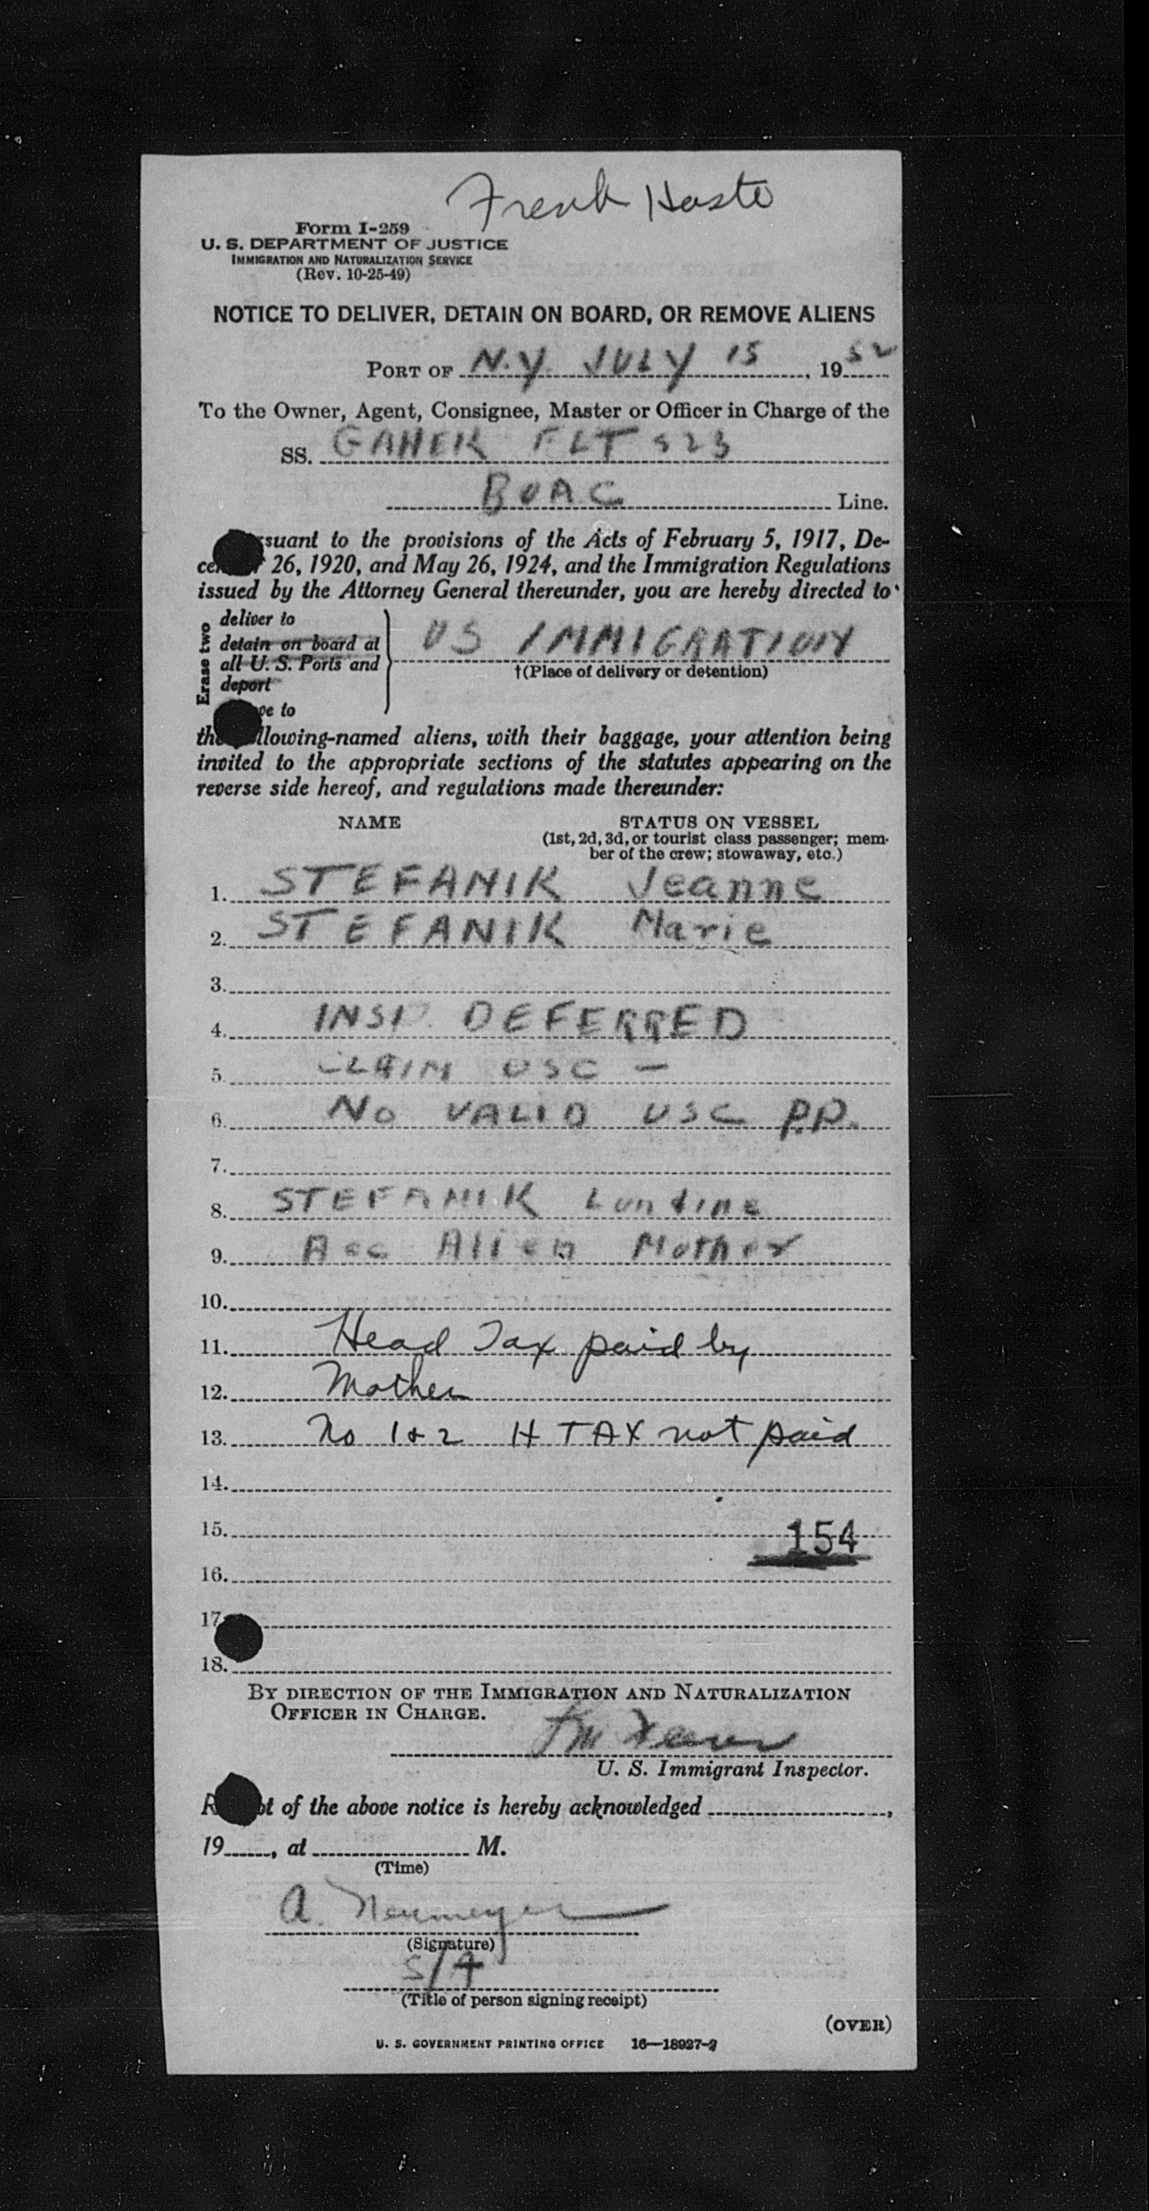 Form I-259
U. S. DEPARTMENT OF JUSTICE
IMMIGRATION AND NATURALIZATION SERVICE
(Rev. 10-25-49)
NOTICE TO DELIVER, DETAIN ON BOARD, OR REMOVE ALIENS
PORT OF N.Y. JULY 15, 1952
To the Owner, Agent, Consignee, Master or Officer in Charge of the
SS. GAHEK FLT 523
BOAC Line.
suant to the provisions of the Acts of February 5, 1917, De-
26, 1920, and May 26, 1924, and the Immigration Regulations
issued by the Attorney General thereunder, you are hereby directed to
Erase two
deliver to
detain on board at
all U. S. Ports and
deport
ve to
US IMMIGRATION
†(Place of delivery or detention)
the following-named aliens, with their baggage, your attention being
invited to the appropriate sections of the statutes appearing on the
reverse side hereof, and regulations made thereunder:
NAME STATUS ON VESSEL
(1st, 2d, 3d, or tourist class passenger; mem-
ber of the crew; stowaway, etc.)
1. STEFANIK Jeanne
2. STEFANIK Marie
3.
4. INSP. DEFERRED
5. CLAIM USC —
6. NO VALID USC P.P.
7.
8. STEFANIK
9. Acc Alien Mother
10.
11. Head Tax paid by
12. Mother
13. No 1 & 2 H TAX not paid
14.
15. 154
16.
17.
18.
BY DIRECTION OF THE IMMIGRATION AND NATURALIZATION
OFFICER IN CHARGE.
U. S. Immigrant Inspector.
R t of the above notice is hereby acknowledged ,
19 , at M.
(Time)
A. Neumeyer
(Signature)
S/A
(Title of person signing receipt)
(OVER)
U. S. GOVERNMENT PRINTING OFFICE 16—18927-2